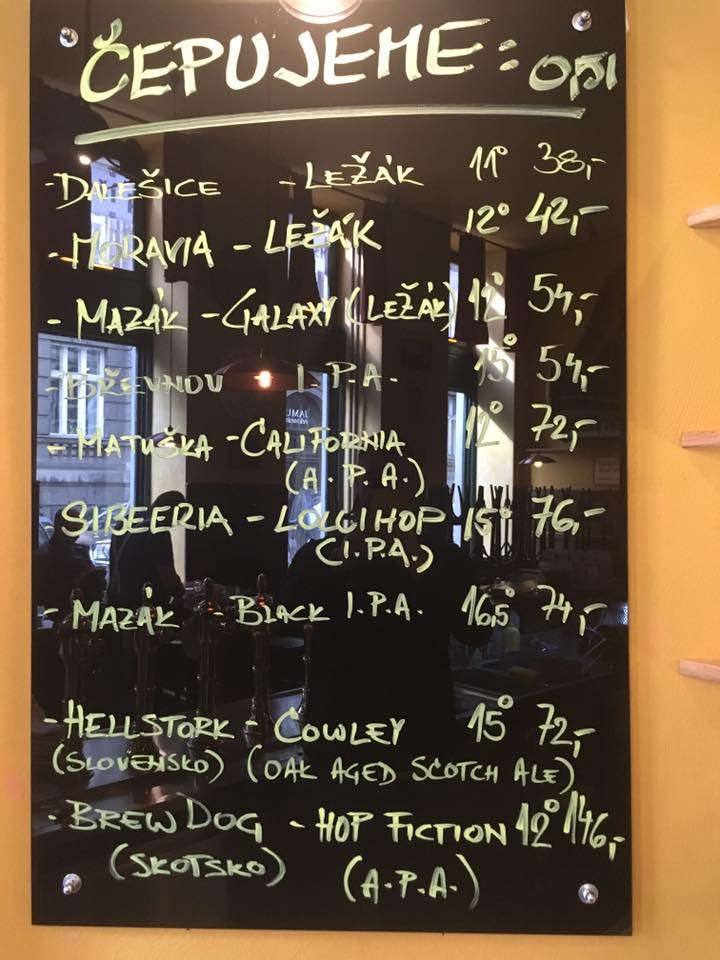 ČEPUJEME: 0,5l
- DALEŠICE - LEŽÁK 11° 38,-
- MORAVIA - LEŽÁK 12° 42,-
- MAZÁK - GALAXY (LEŽÁK) 12° 54,-
- BŘEVNOV I.P.A. 15° 54,-
- MATUŠKA - CALIFORNIA 12° 72,-
(A.P.A.)
- SIBEERIA - LOLCIHOP 15° 76,-
(I.P.A.)
- MAZÁK - BLACK I.P.A. 16,5° 74,-
- HELLSTORK - COWLEY 15° 72,-
(SLOVENSKO) (OAK AGED SCOTCH ALE)
- BREWDOG - HOP FICTION 12° 146,-
(SKOTSKO) (A.P.A.)